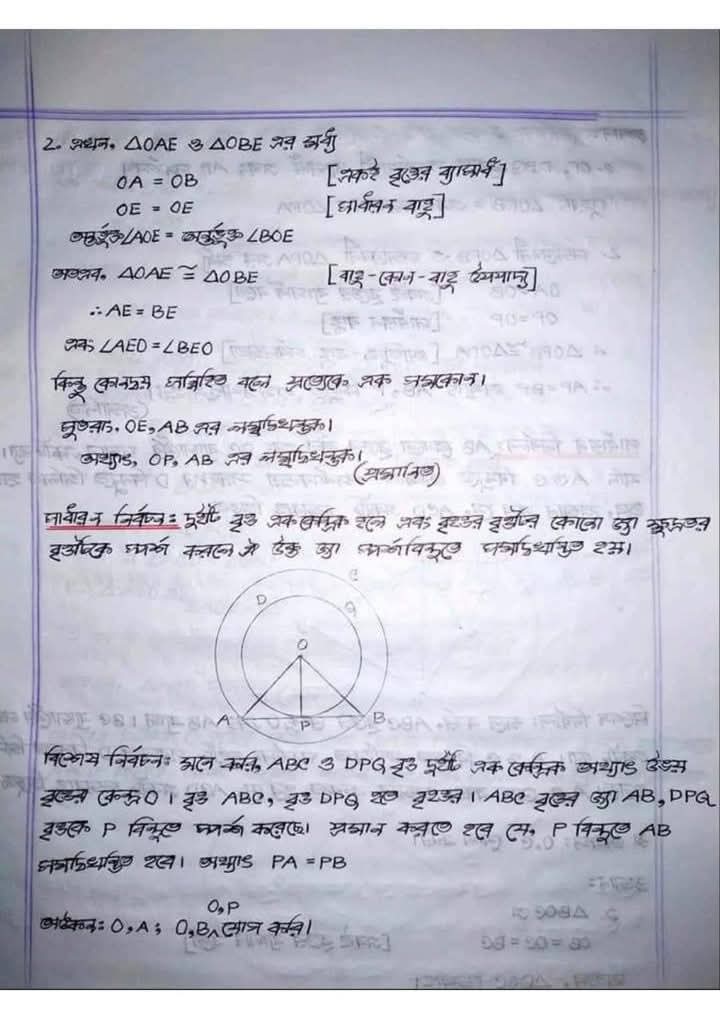 2. এখন, ΔOAE ও ΔOBE এর মধ্যে
OA = OB [একই বৃত্তের ব্যাসার্ধ]
OE = OE [সাধারন বাহু]
অন্তর্ভুক্ত ∠AOE = অন্তর্ভুক্ত ∠BOE
অতএব, ΔOAE ≅ ΔOBE [বাহু-কোন-বাহু উপপাদ্য]
∴ AE = BE
এবং ∠AEO = ∠BEO
কিন্তু কোনদ্বয় সন্নিহিত বলে প্রত্যেকে এক সমকোন।
সুতরাং, OE, AB এর লম্বদ্বিখন্ডক।
অর্থ্যাৎ, OP, AB এর লম্বদ্বিখন্ডক।
(প্রমানিত)
সাধারন নির্বচন: দুইটি বৃত্ত এককেন্দ্রিক হলে এবং বৃহত্তর বৃত্তটির কোনো জ্যা ক্ষুদ্রতর
বৃত্তটিকে স্পর্শ করলে ঐ উক্ত জ্যা স্পর্শবিন্দুতে সমদ্বিখন্ডিত হয়।
C
D Q
O
A P B
বিশেষ নির্বচন: মনে করি, ABC ও DPQ বৃত্ত দুইটি এক কেন্দ্রিক অর্থ্যাৎ উভয়
বৃত্তের কেন্দ্র O। বৃত্ত ABC, বৃত্ত DPQ হতে বৃহত্তর। ABC বৃত্তের জ্যা AB, DPQ
বৃত্তকে P বিন্দুতে স্পর্শ করেছে। প্রমান করতে হবে যে, P বিন্দুতে AB
সমদ্বিখন্ডিত হবে। অর্থ্যাৎ PA = PB
O,P
অংকন: O,A; O,B^ যোগ করি।